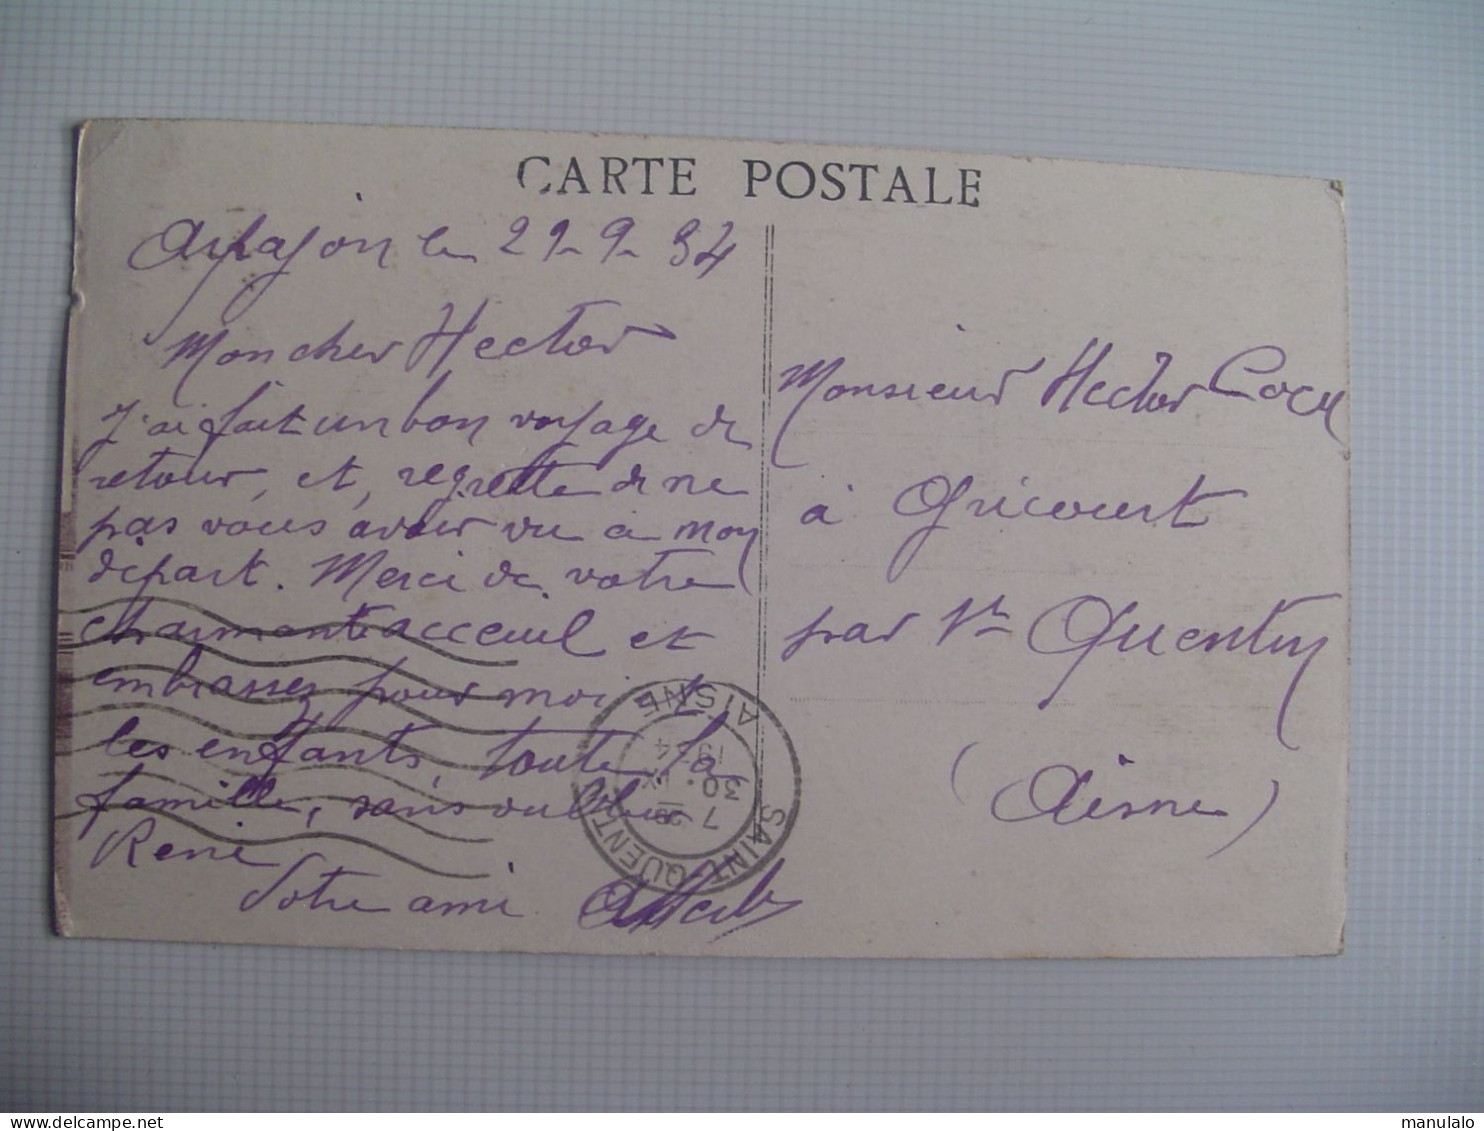 CARTE POSTALE
Arpajon le 29-9-34
Mon cher Hector
J'ai fait un bon voyage de
retour, et, regrette de ne
pas vous avoir vu à mon
départ. Merci de votre
charmante acceuil et
embrassez pour moi
les enfants, toute la
famille, sans oublier
René
Votre ami
Monsieur Hector Cocu
à Gricourt
par St Quentin
(Aisne)
SAINT-QUENTIN
AISNE
7 30
1934
manulalo